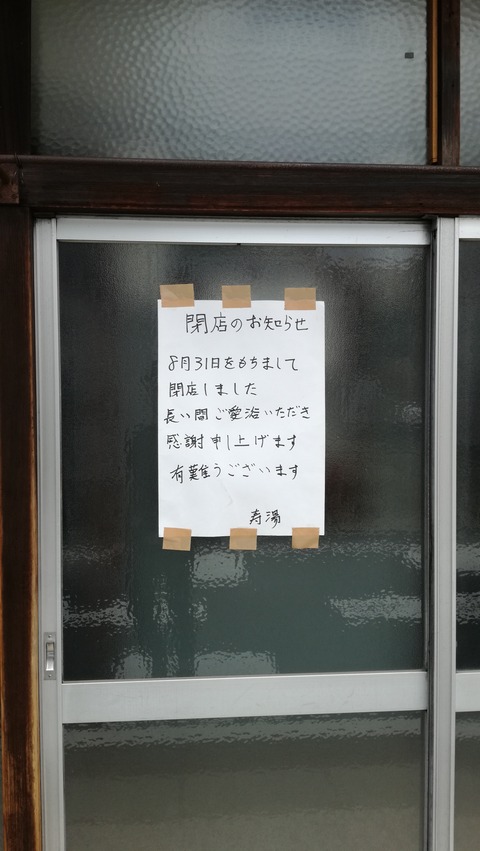 閉店のお知らせ
8月31日をもちまして
閉店しました
長い間ご愛浴いただき
感謝申し上げます
有難うございます
寿湯